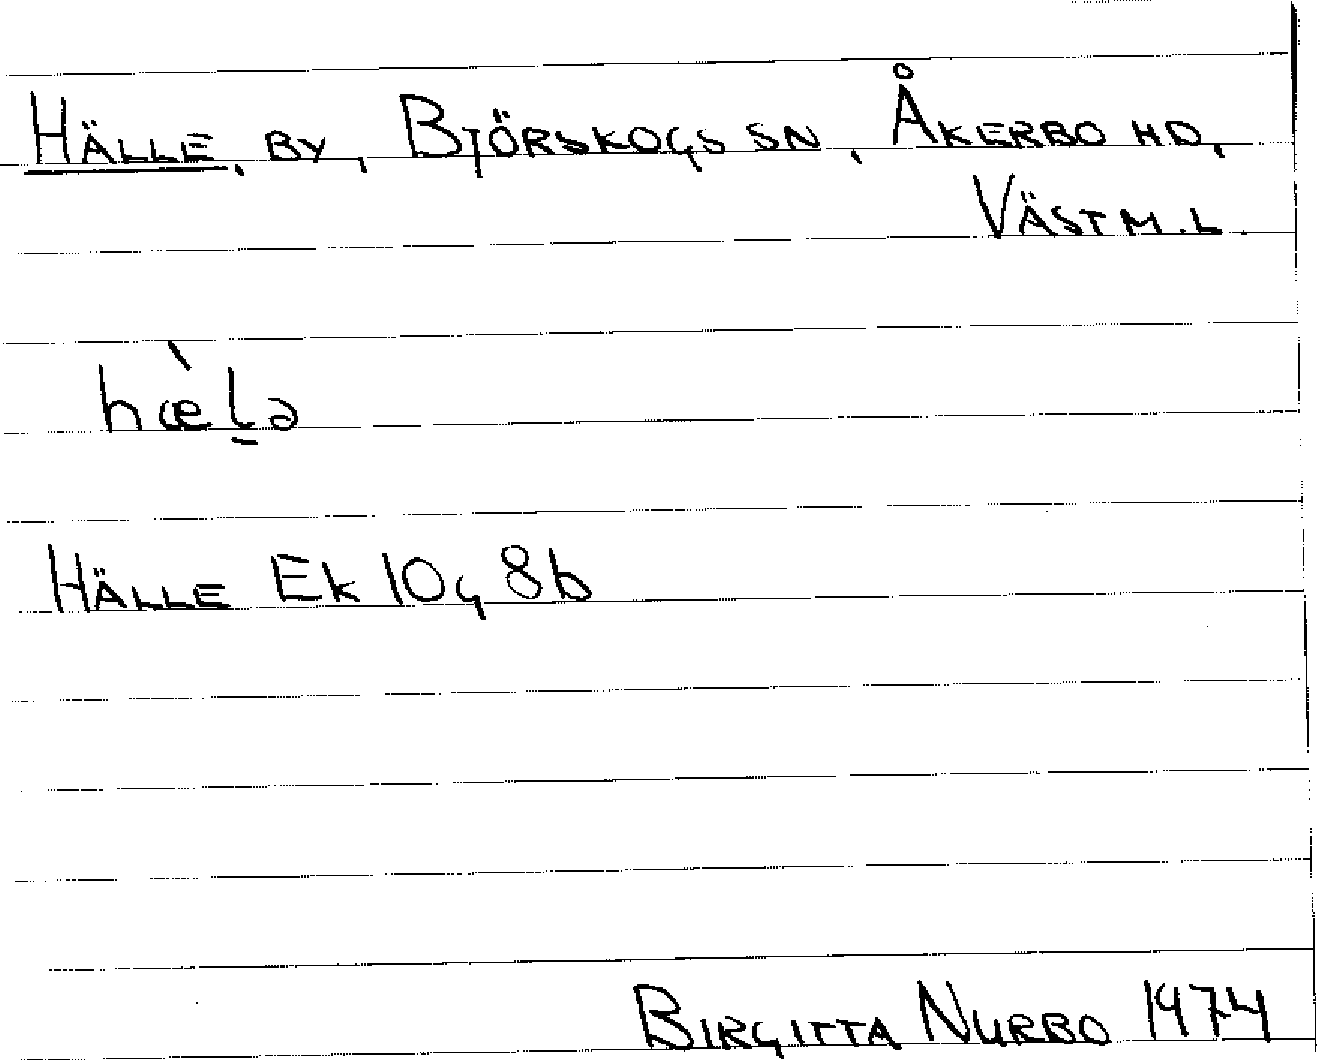 HÄLLE, BY, BJÖRSKOGS SN, ÅKERBO HD,
VÄSTM.L.
hæ̀l̠ə
HÄLLE Ek 10g 8b
BIRGITTA NURBO 1974